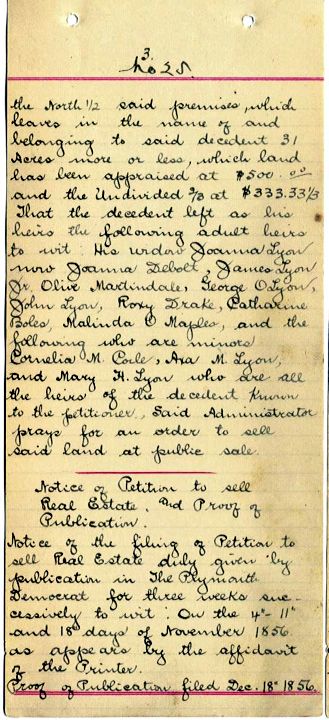 3.
No 25.
the North 1/2 said premises, which
leaves in the name of and
belonging to said decedent 31
Acres more or less, which land
has been appraised at $500.00
and the Undivided 2/3 at $333.33 1/3
That the decedent left as his
heirs the following adult heirs
to wit: His widow Joanna Lyon
now Joanna Debolt, James Lyon
Jr. Olive Martindale, George O Lyon,
John Lyon, Roxy Drake, Catharine
Boles, Malinda O Maples, and the
following who are minors
Cornelia M. Cole, Asa M. Lyon,
and Mary H. Lyon who are all
the heirs of the decedent known
to the petitioner, Said Administrator
prays for an order to sell
said land at public sale.
Notice of Petition to sell
Real Estate. And Proof of
Publication.
Notice of the filing of Petition to
sell Real Estate duly given by
publication in The Plymouth
Democrat for three weeks suc-
cessively to wit: On the 4" - 11"
and 18" days of November 1856.
as appears by the affidavit
of the Printer.
Proof of Publication filed Dec. 18" 1856.